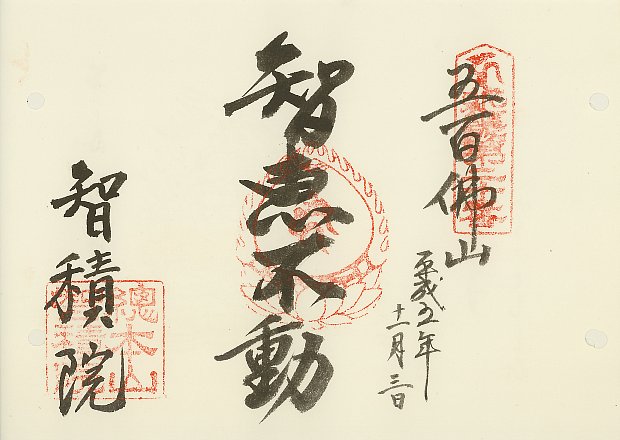 五百佛山
平成五年
十一月三日
智恵不動
智積院
總本山